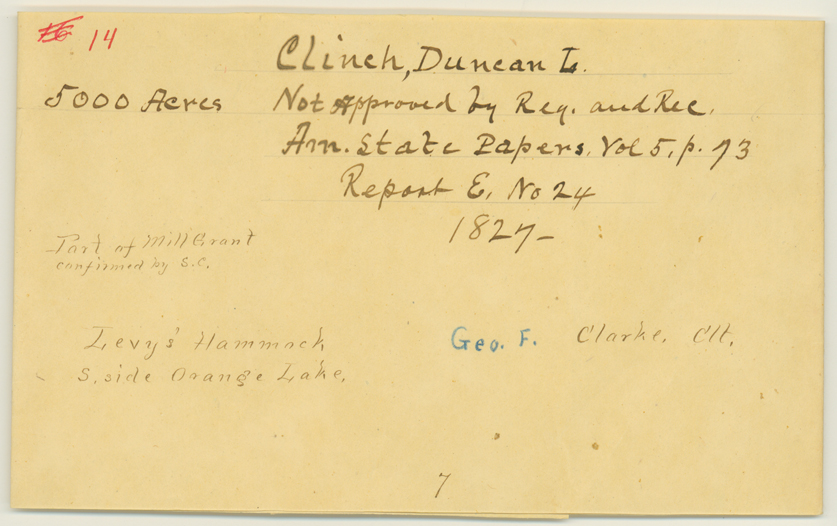 14
Clinch, Duncan L.
5000 Acres Not Approved by Reg. and Rec.
Am. State Papers, Vol 5, p. 73
Report E, No 24
1827-
Part of Mill Grant
confirmed by S.C.
Levys' Hammock
Geo. F. Clarke, Clt.
S. side Orange Lake,
7